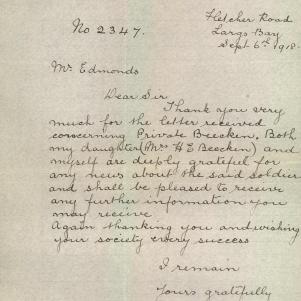 No 2347.
Fletcher Road
Largs Bay
Sept 6th 1918.
Mr Edmonds
Dear Sir
Thank you very
much for the letter received
concerning Private Beecken. Both
my daughter (Mrs H E Beecken) and
myself are deeply grateful for
any news about the said soldier
and shall be pleased to receive
any further information you
may receive.
Again thanking you and wishing
your society every success
I remain
Yours gratefully